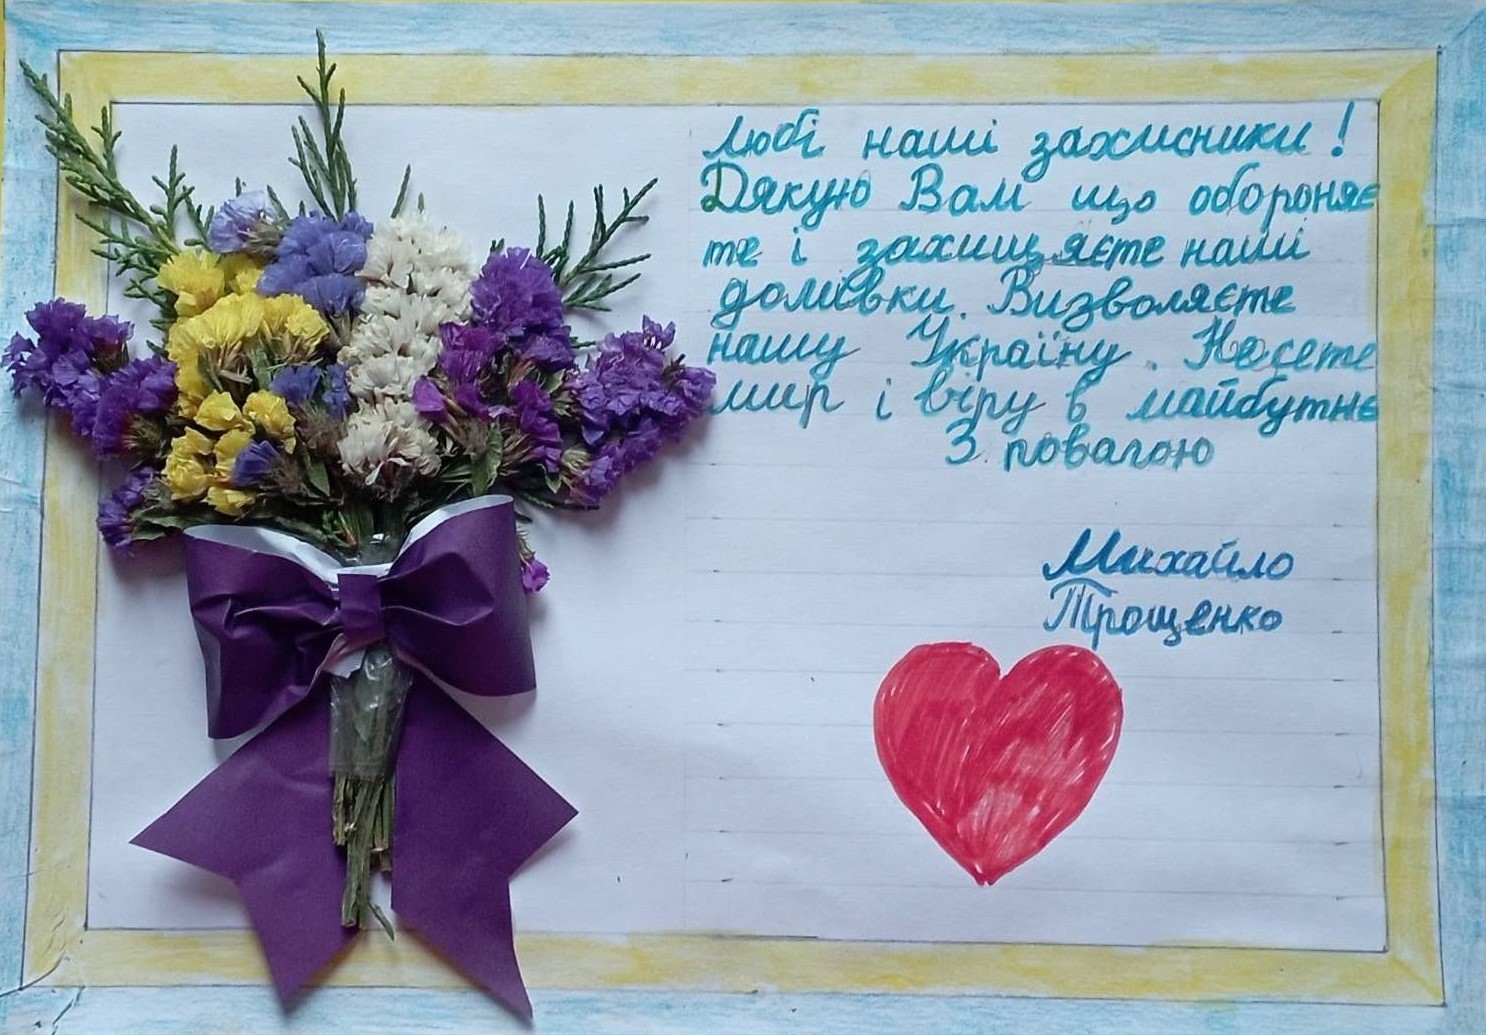 Любі наші захисники!
Дякую Вам що обороняє
те і захищяєте наші
домівки. Визволяєте
нашу Україну. Несете
мир і віру в майбутнє
З повагою
Михайло
Трощенко